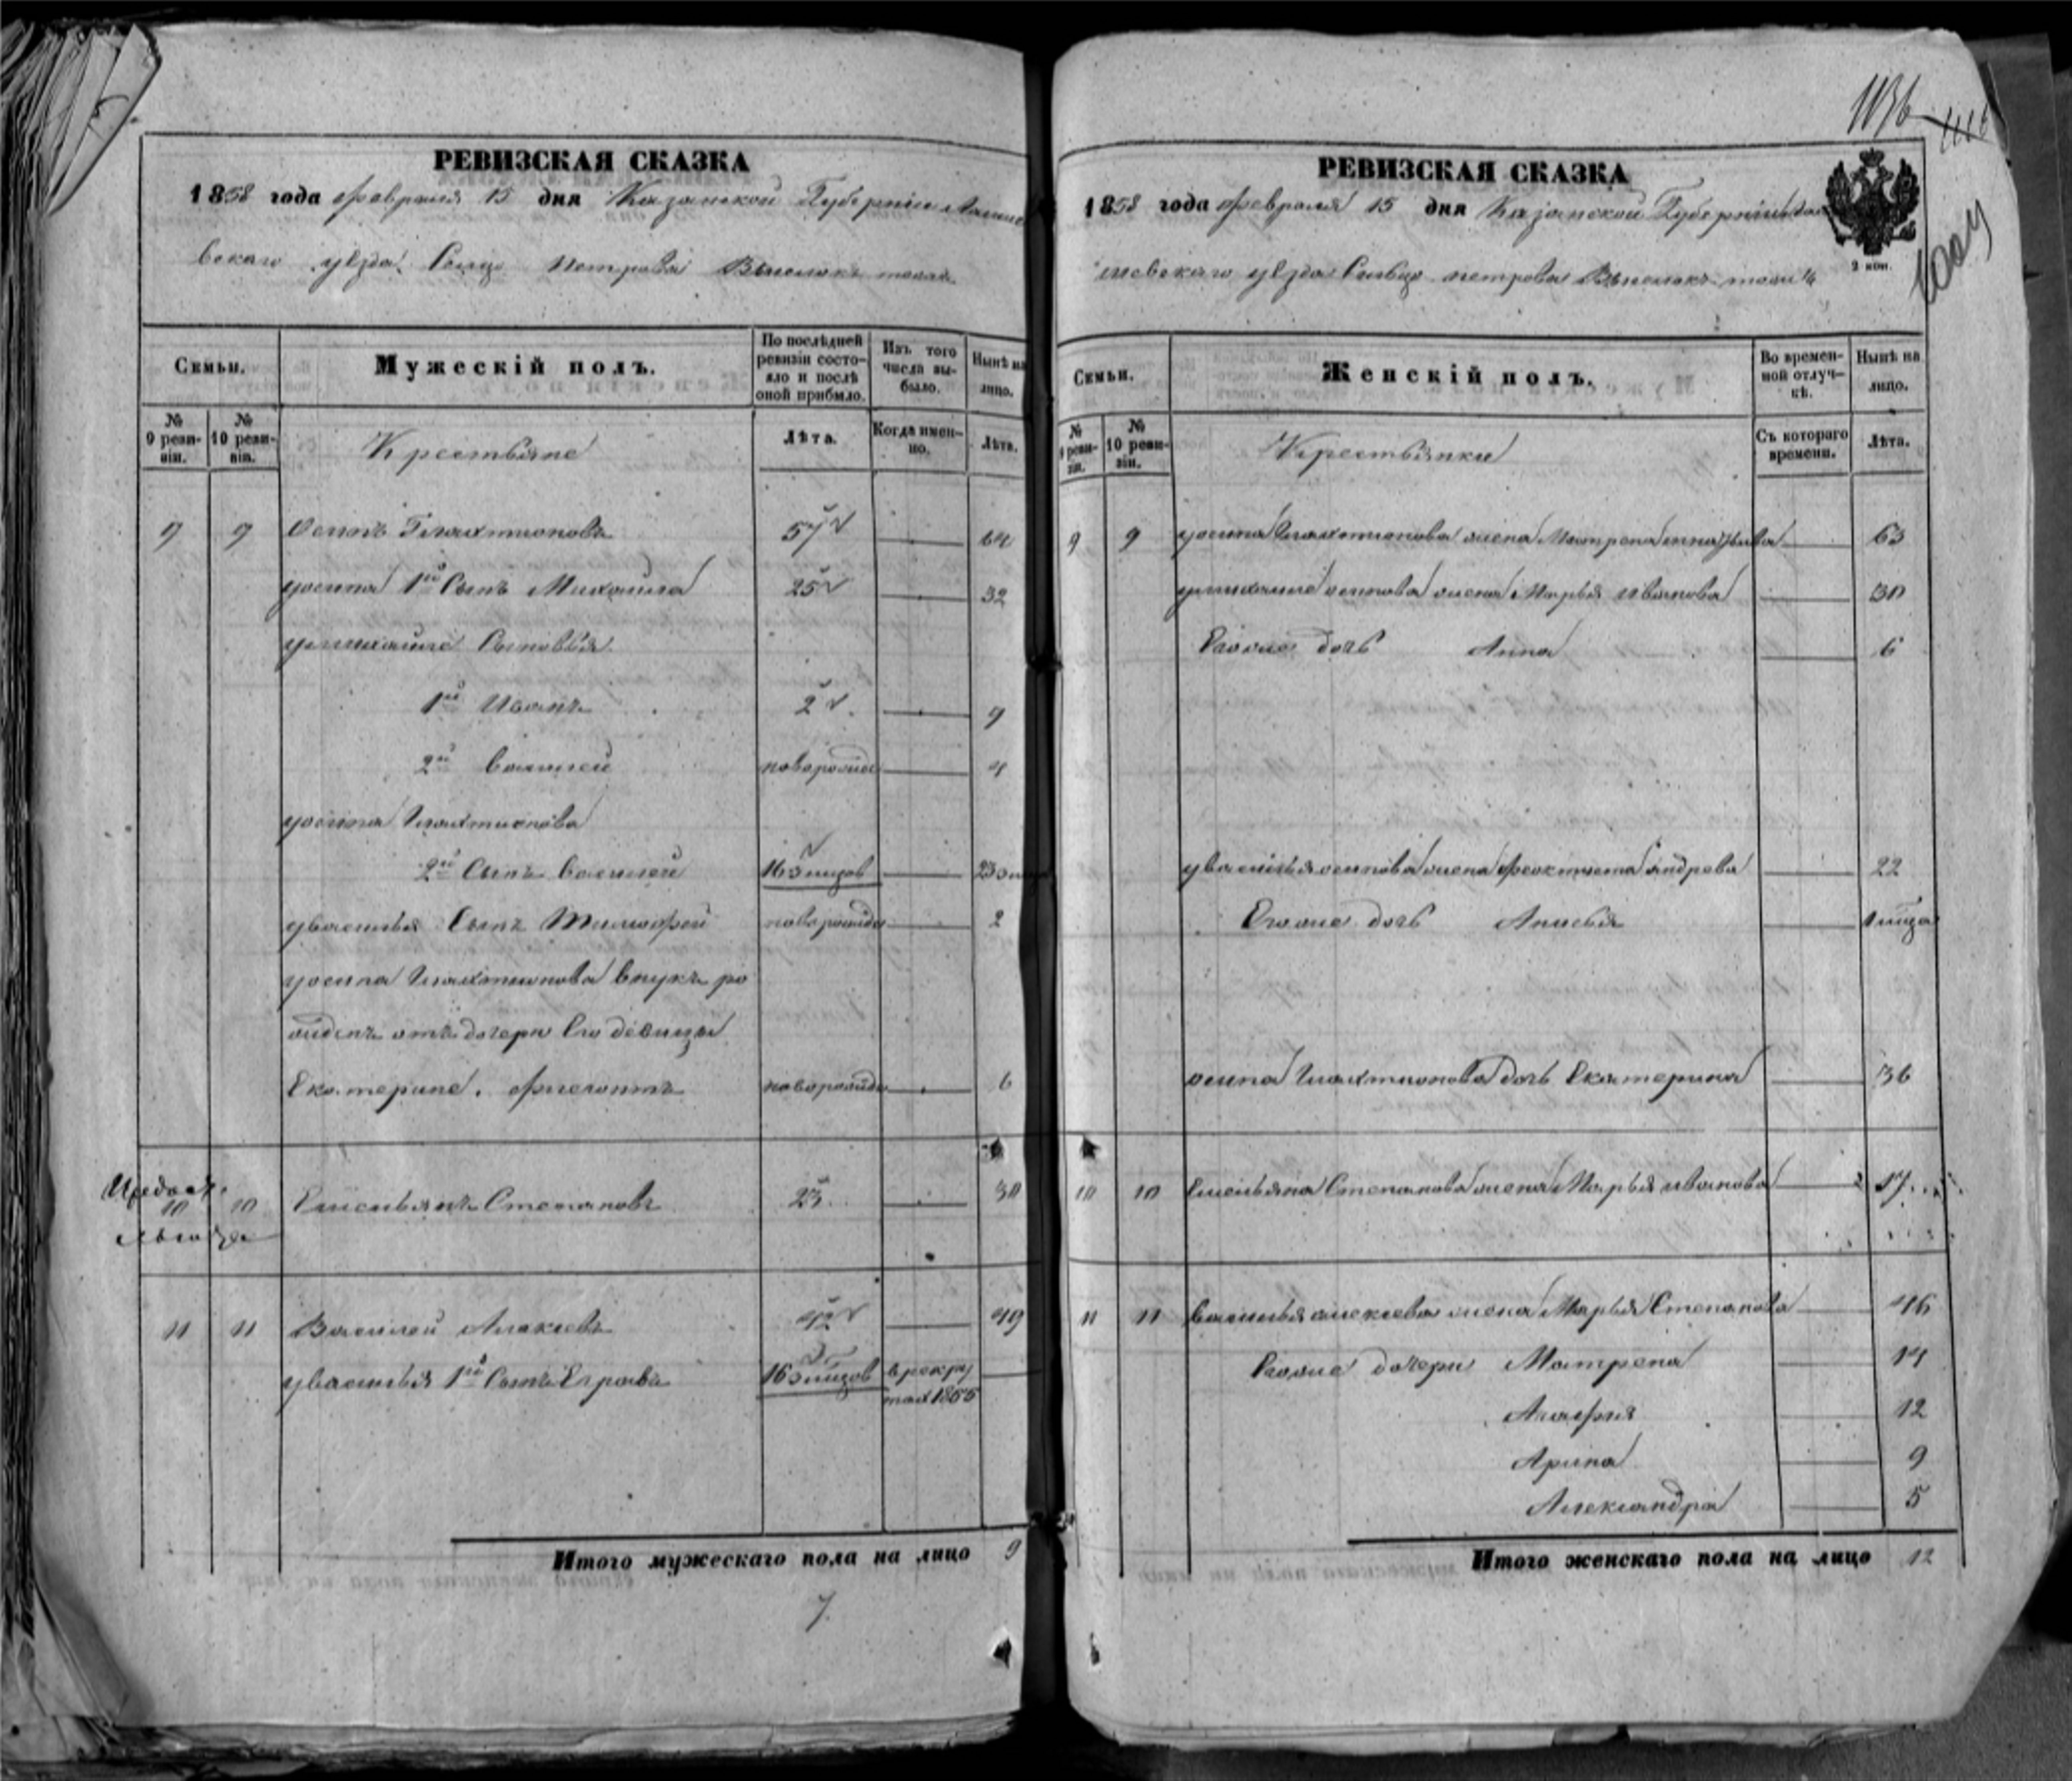 1136
РЕВИЗСКАЯ СКАЗКА
1858 года февраля 15 дня Казанской Губернии Лаише
вскаго уѣзда Сельцо Петрова
Семьи.
Мужескій полъ.
По послѣдней ревизіи состояло и послѣ оной прибыло.
Изъ того числа выбыло.
Нынѣ на лицо.
№ 9 ревизіи.
№ 10 ревизіи.
Крестьяне
Лѣта.
Когда именно.
Лѣта.
9 9 Осипъ Галахтионовъ 57 64
уосипа 1й Сынъ Михайла 25 32
умихайле Сыновья
1й Иванъ 2 9
2й Василей новорожден 4
уосипа Галахтионова
2й Сынъ Василей 16 23
уВасилья Сынъ Тимофей новорожден 2
уосипа Галахтионова внукъ ро
жденъ отъ дочери Его девицы
Екатерине. новорожден 6
10 10 Емельянъ Степановъ 23 30
11 11 Василей Алексевъ 42 49
уВасилья 1й Сынъ 16 в рекру
тах 1855
Итого мужескаго пола на лицо 9
7.
РЕВИЗСКАЯ СКАЗКА
1858 года февраля 15 дня Казанской Губернии Лаи
шевскаго уѣзда Сельцо петрова
2 коп.
Семьи.
Женскій полъ.
Во временной отлучкѣ.
Нынѣ на лицо.
№ 9 ревизіи.
№ 10 ревизіи.
Крестьянки
Съ котораго времени.
Лѣта.
9 9 уосипа Галахтионова жена Матрена 63
умихайле осипова жена Марья Иванова 30
Егоже дочь Анна 6
уВасилья осипова жена Феоктиста андрева 22
Егоже дочь Анисья
осипа Галахтионова дочь Екатерина 36
10 10 Емельяна Степанова жена Марья иванова
11 11 Василья алексева жена Марья Степанова 46
Егоже дочери Матрена 14
Агафия 12
Арина 9
Александра 5
Итого женскаго пола на лицо 12